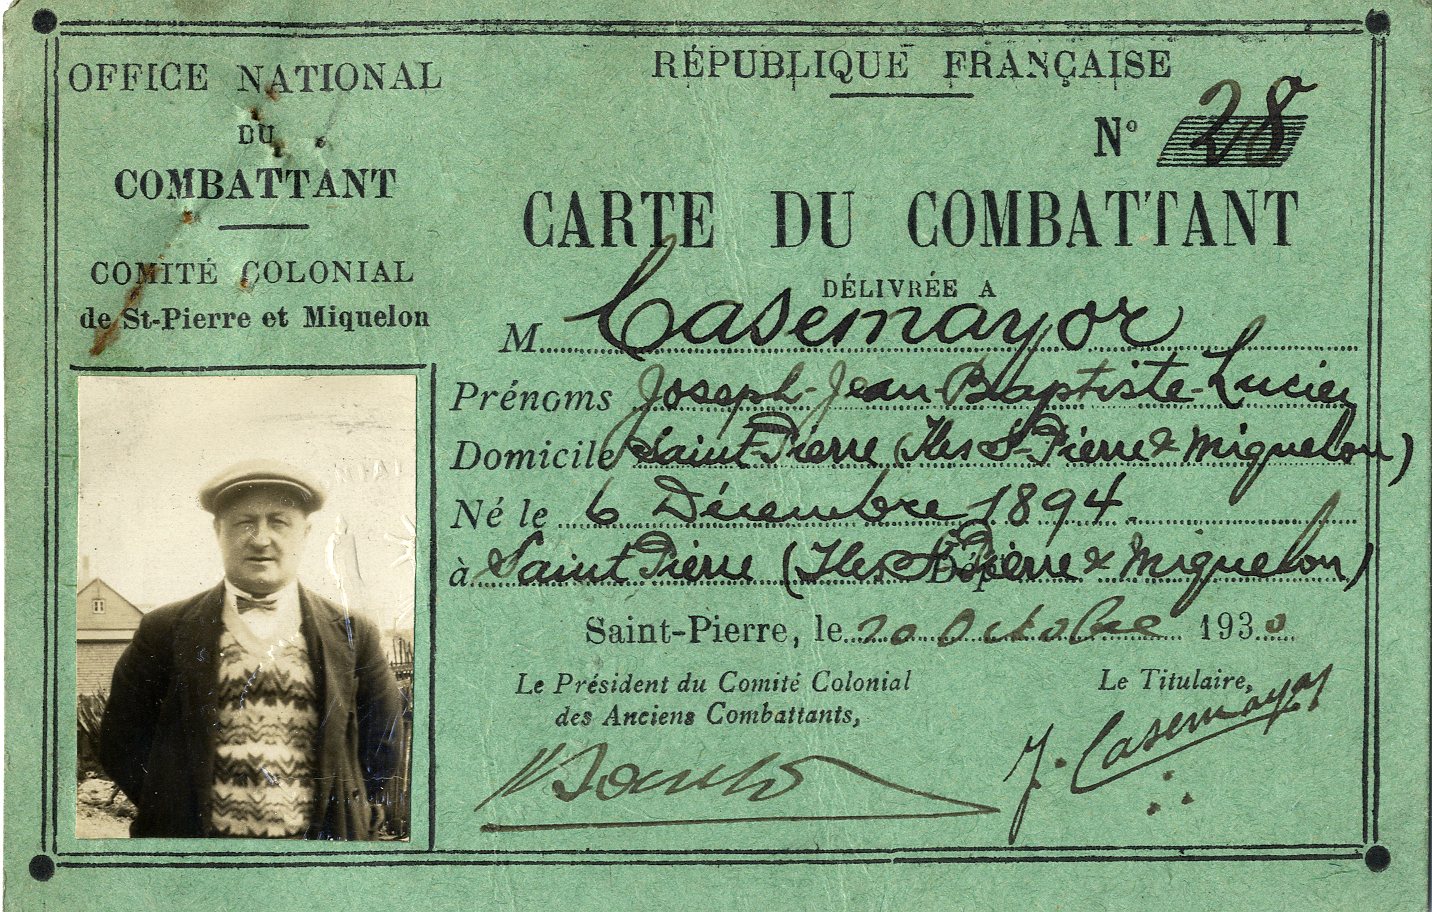 OFFICE NATIONAL
DU
COMBATTANT
COMITÉ COLONIAL
de St-Pierre et Miquelon
RÉPUBLIQUE FRANÇAISE
N° 28
CARTE DU COMBATTANT
DÉLIVRÉE A
M Casemayor
Prénoms Joseph-Jean-Baptiste-Lucien
Domicile Saint-Pierre (Iles St-Pierre & Miquelon)
Né le 6 Décembre 1894
à Saint Pierre (Iles St Pierre & Miquelon)
Saint-Pierre, le 20 Octobre 1930
Le Président du Comité Colonial
des Anciens Combattants,
Le Titulaire,
J. Casemayor